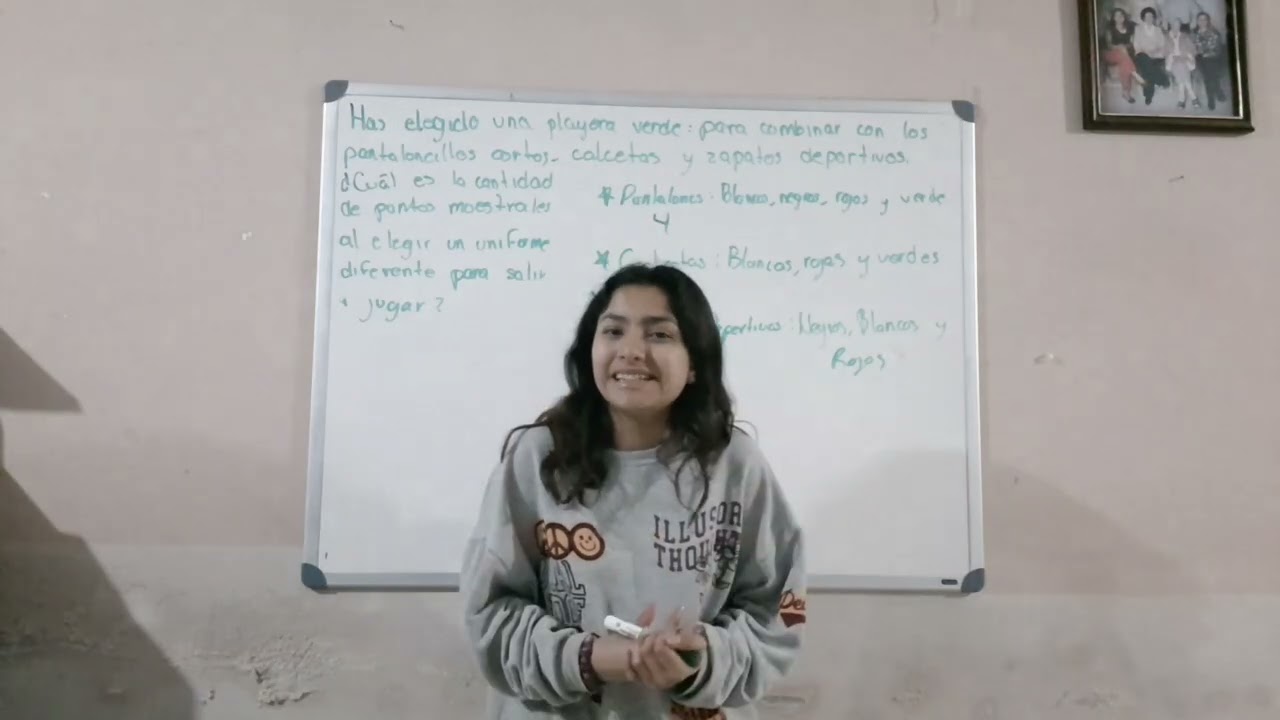 Has elegido una playera verde: para combinar con los
pantaloncillos cortos- calcetas y zapatos deportivos.
¿Cuál es la cantidad
de puntos muestrales
al elegir un uniforme
diferente para salir
a jugar?
* Pantalones: Blancos, negros, rojos y verde
4
* : Blancos, rojas y verdes
: Negros, Blancos y
Rojos
ILLUSOR
THOU